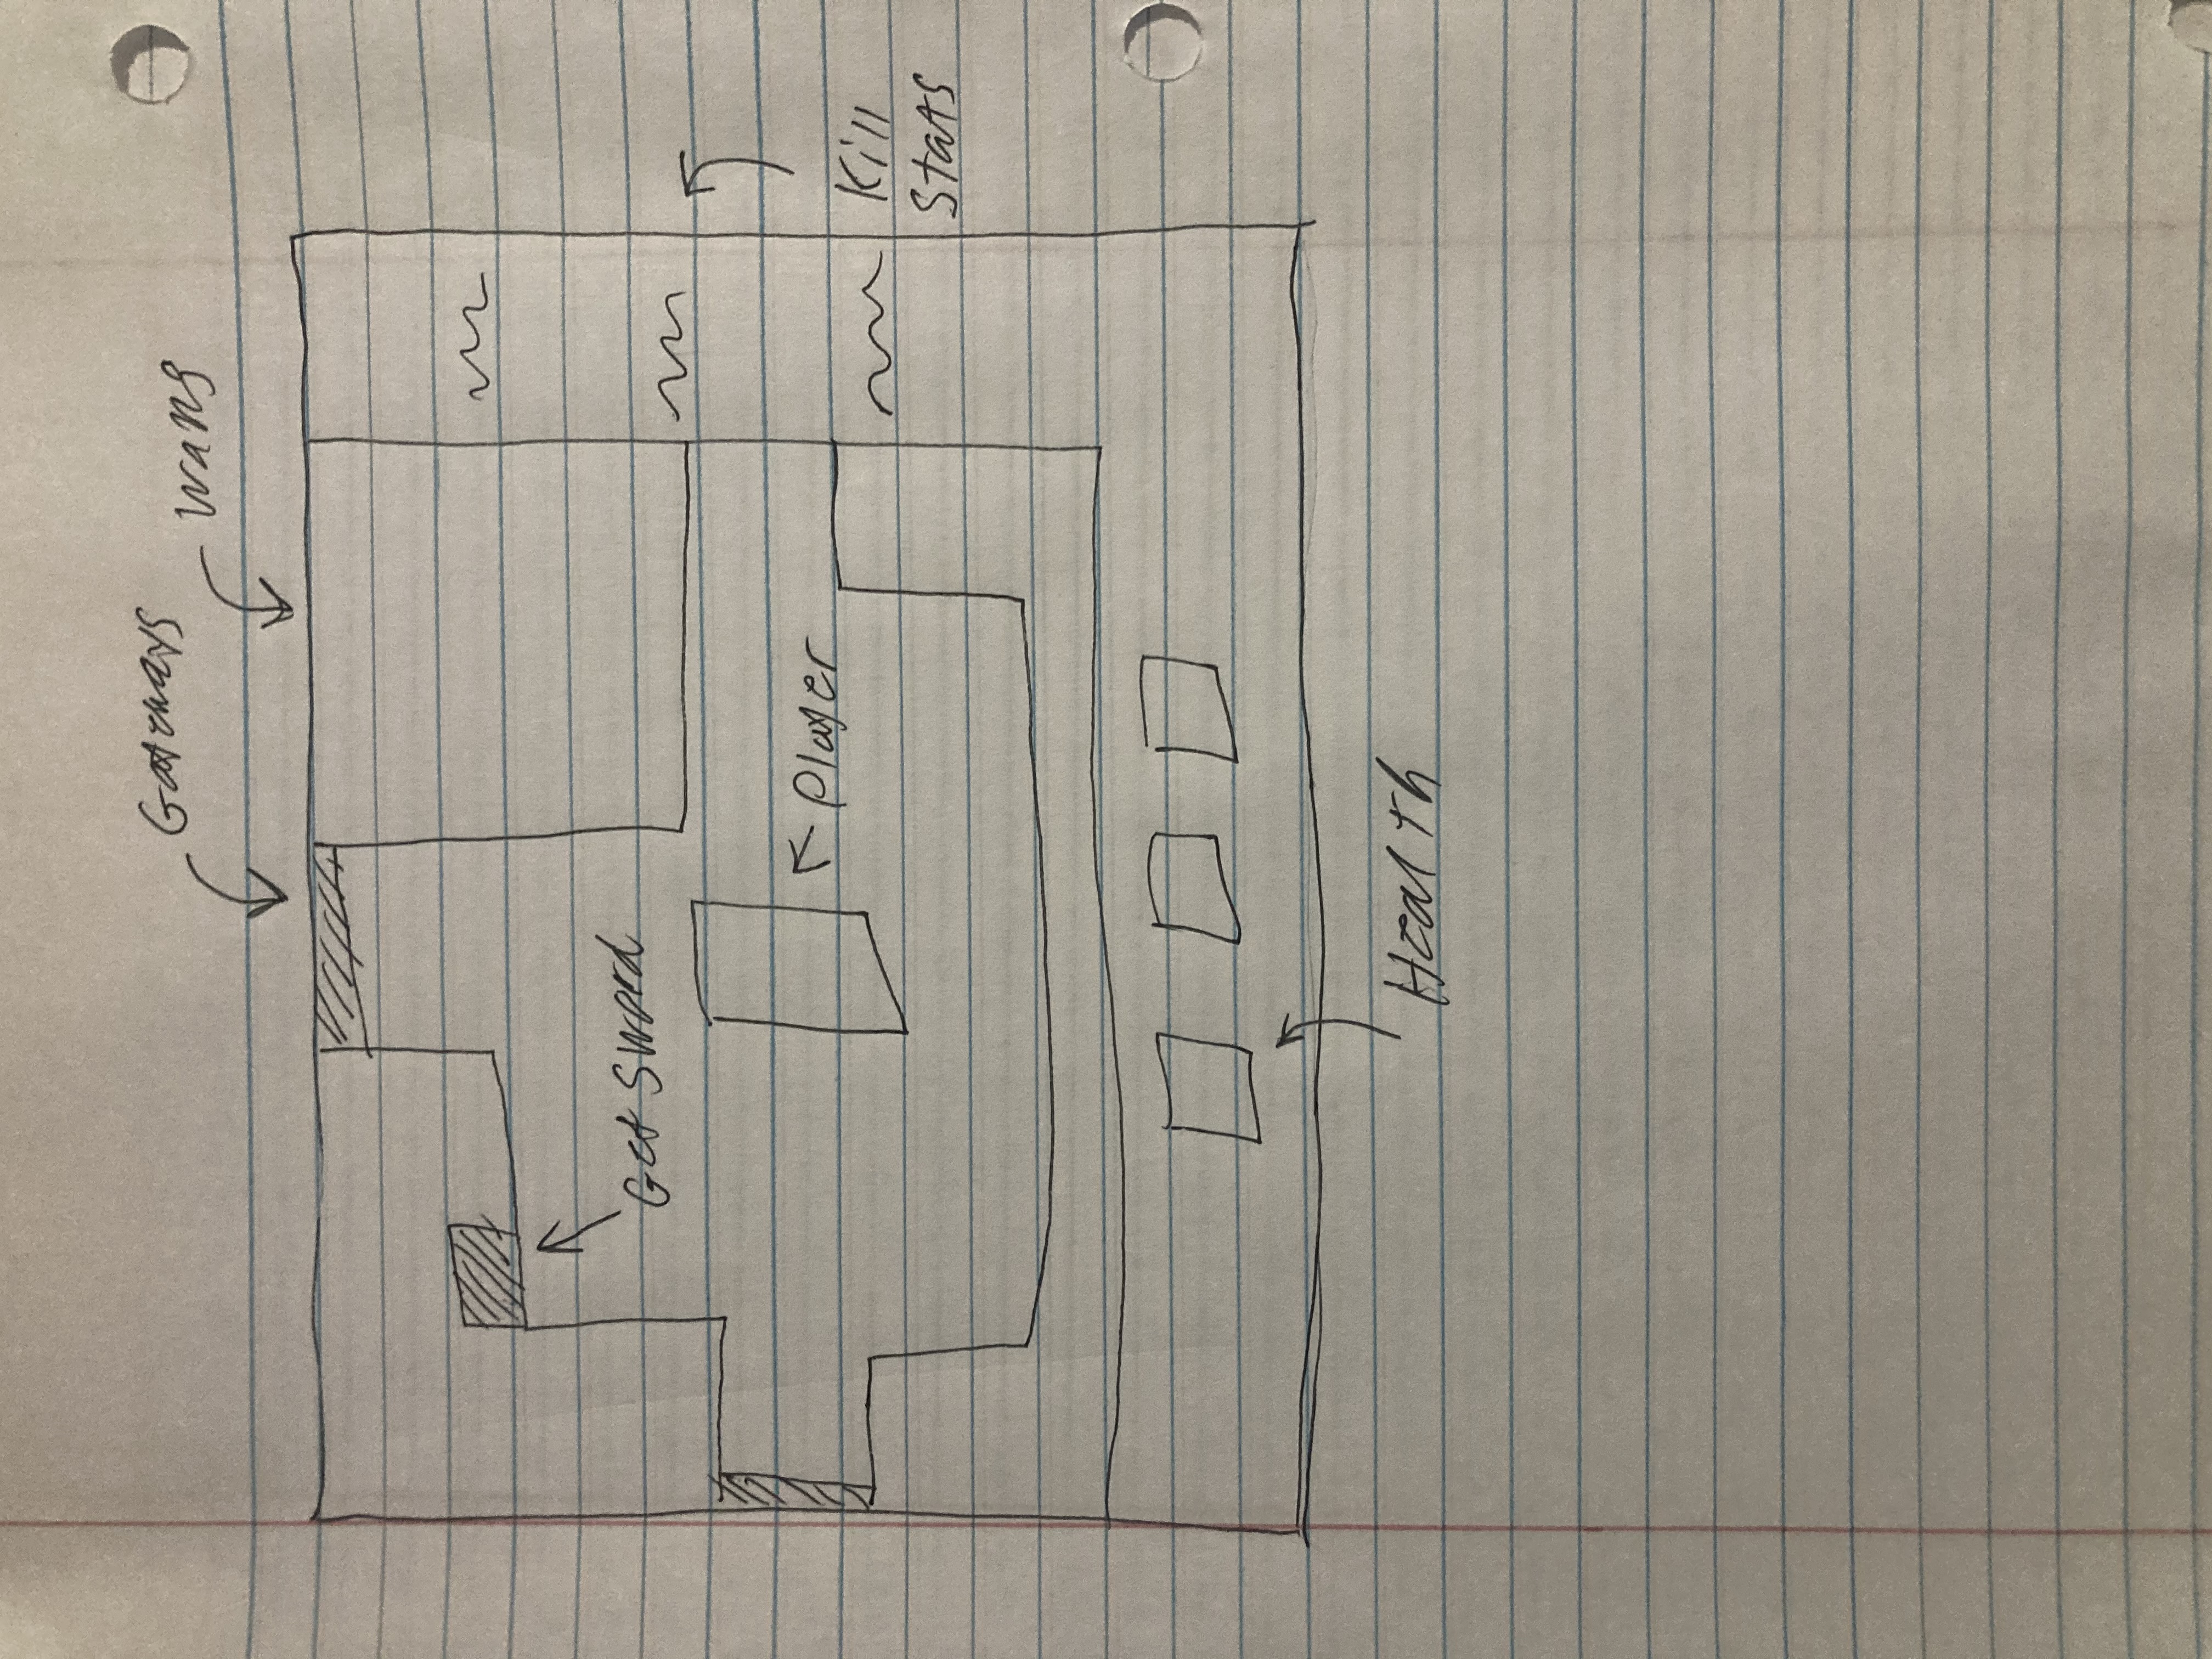 Gateways
Walls
Get Sword
Player
Kill
Stats
Health